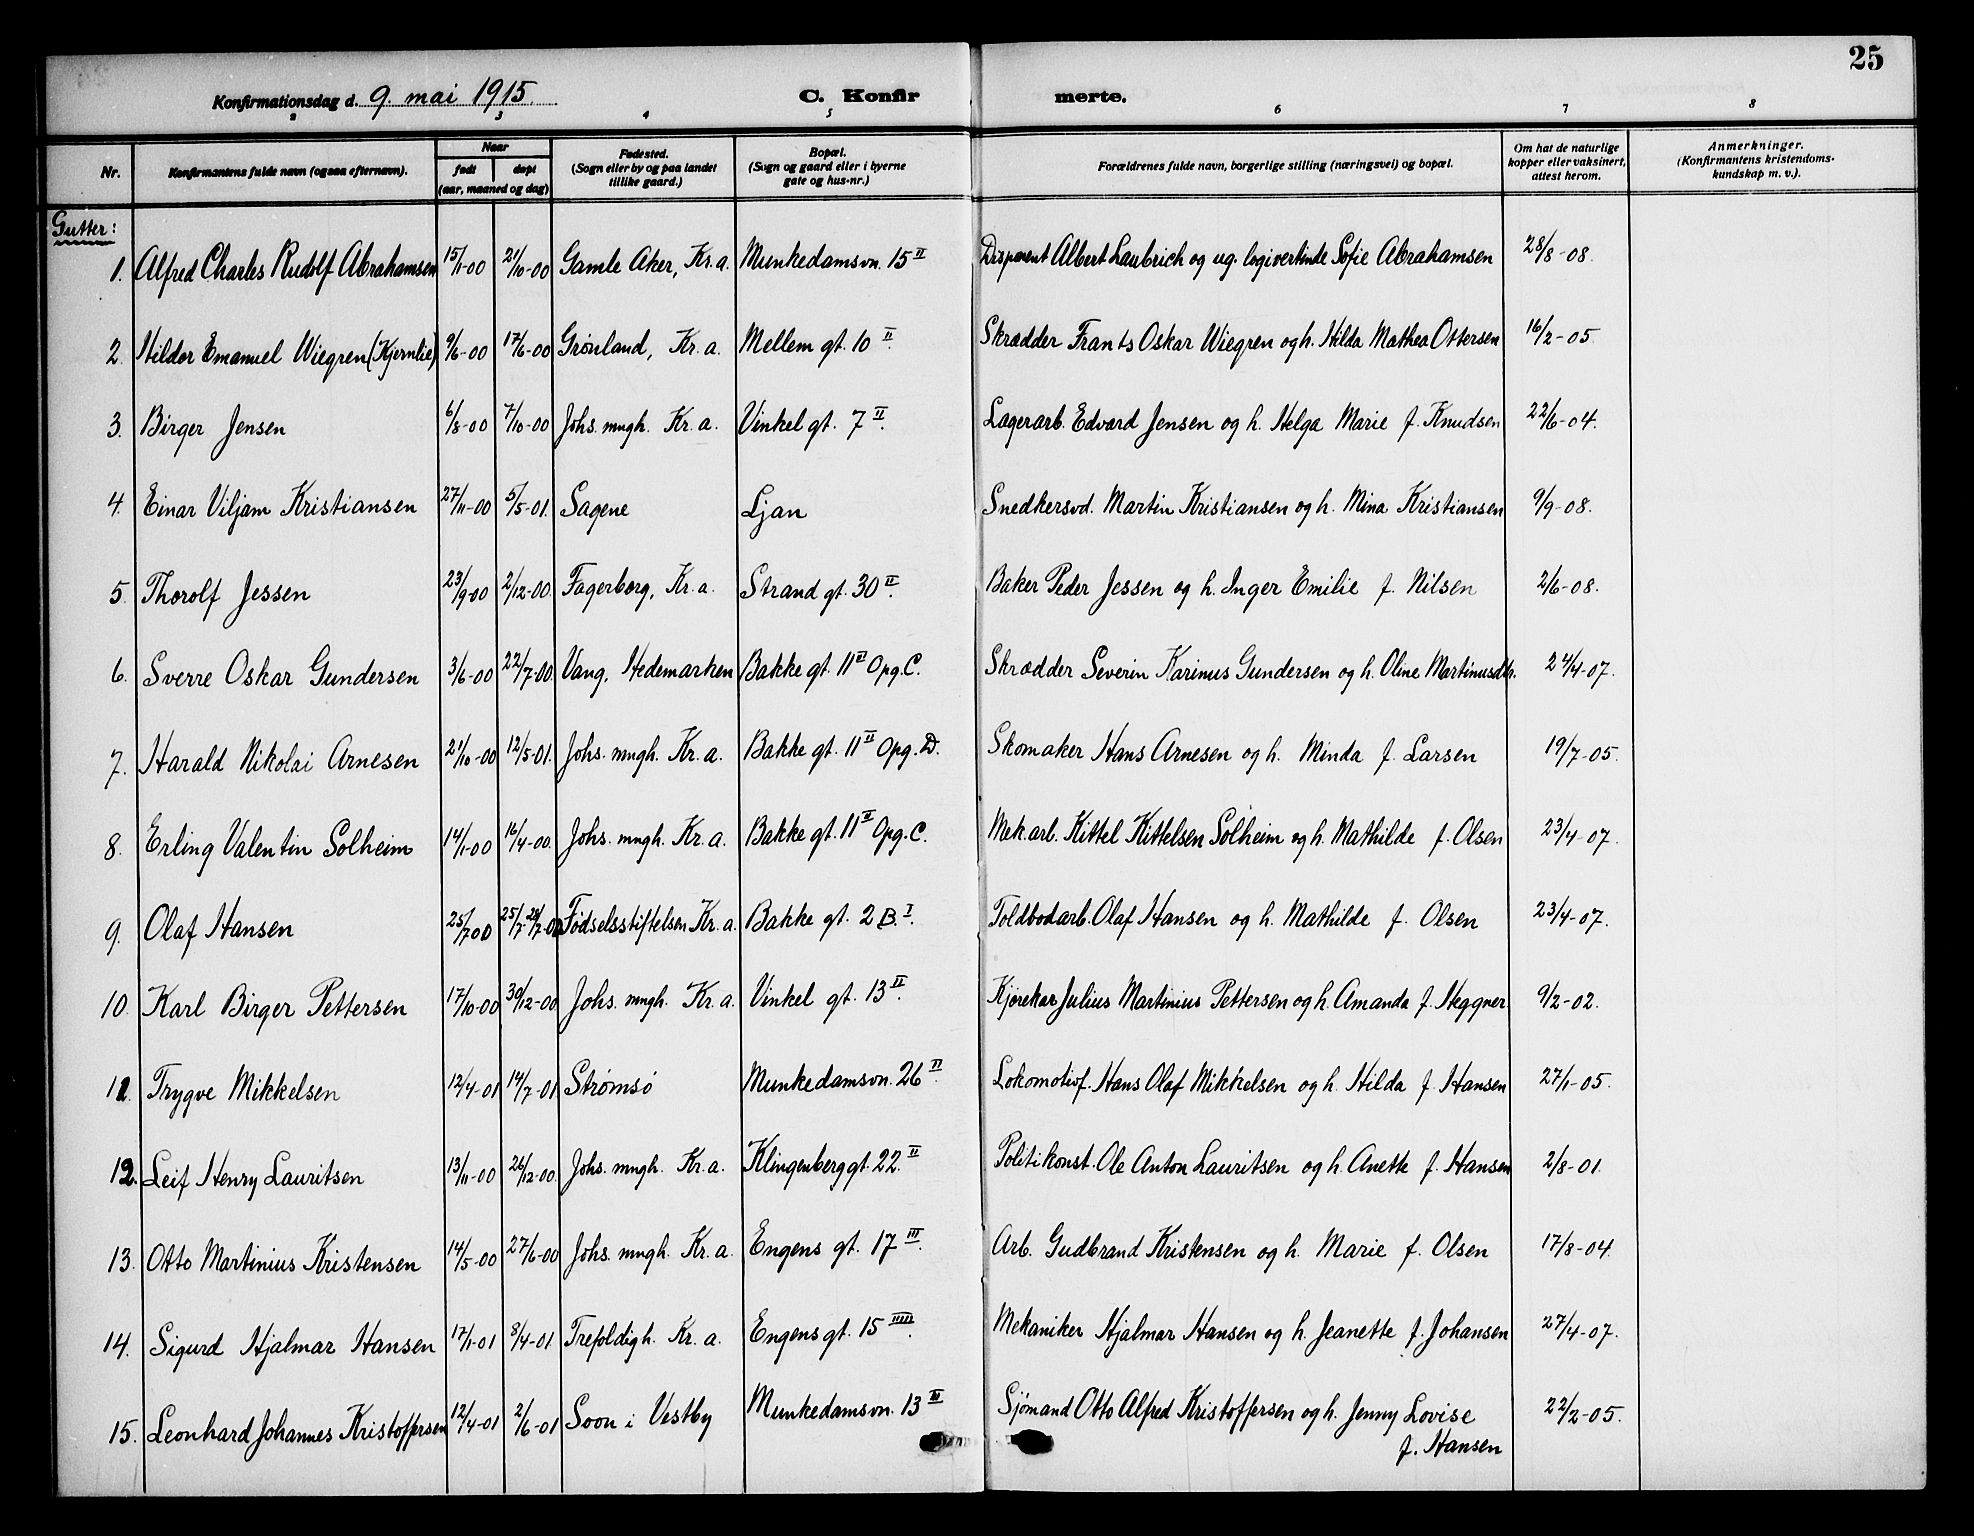 25
Konfirmationsdag d. 9. mai 1915. C. Konfir merte.
2 3 4 5 6 7 8
Nr. Konfirmantens fulde navn (ogsaa efternavn). Naar født døpt (aar, maaned og dag) Fødested. (Sogn eller by og paa landet tillike gaard.) Bopæl. (Sogn og gaard eller i byerne gate og hus-nr.) Forældrenes fulde navn, borgerlige stilling (næringsvei) og bopæl. Om hat de naturlige kopper eller vaksinert, attest herom. Anmerkninger. (Konfirmantens kristendoms- kundskap m. v.).
Gutter:
1. Alfred Charles Rudolf Abrahamsen 15/11-00 21/10-00 Gamle Aker, Kr.a. Munkedamsvn. 15 II Disponent Albert Laubrich og ug. logivertinde Sofie Abrahamsen 28/8-08.
2. Hildor Emanuel Wiegren (Kjernlie) 9/6-00 17/6-00 Grønland, Kr.a. Mellem gt. 10 II. Skrædder Frants Oskar Wiegren og h. Hilda Mathea Ottersen 16/2-05.
3. Birger Jensen 6/8-00 7/10-00 Johs. mngh. Kr.a. Vinkel gt. 7 II. Lagerarb. Edvard Jensen og h. Helga Marie f. Knudsen 22/6-04.
4. Einar Viljam Kristiansen 27/11-00 5/5-01. Sagene Ljan Snedkersvd. Martin Kristiansen og h. Mina Kristiansen 9/9-08.
5. Thorolf Jessen 23/9-00 2/12-00. Fagerborg, Kr.a. Strand gt. 30 II. Baker Peder Jessen og h. Inger Emilie f. Nilsen 2/6-08.
6. Sverre Oskar Gundersen 3/6-00 22/7-00. Vang, Hedemarken Bakke gt. 11 II Opg. C. Skrædder Severin Karinus Gundersen og h. Oline Martinusdtr. 24/4-07.
7. Harald Nikolai Arnesen 21/10-00 12/5-01. Johs. mngh. Kr.a. Bakke gt. 11 II Opg. D. Skomaker Hans Arnesen og h. Minda f. Larsen 19/7-05.
8. Erling Valentin Solheim 14/1-00 16/4-00. Johs. mngh. Kr.a. Bakke gt. 11 II Opg. C. Mek.arb. Kittel Kittelsen Solheim og h. Mathilde f. Olsen 23/4-07.
9. Olaf Hansen 25/7 00 25/7- Fødselsstiftelsen Kr.a. Bakke gt. 2 B. I. Toldbodarb. Olaf Hansen og h. Mathilde f. Olsen 23/4-07.
10. Karl Birger Pettersen 17/10-00 30/12-00. Johs. mngh. Kr.a. Vinkel gt. 13 II. Kjørekar Julius Martinius Pettersen og h. Amanda f. Heggner 9/2-02.
11. Trygve Mikkelsen 12/4-01 14/7-01 Strømsø Munkedamsvn. 26 II. Lokomotivf. Hans Olaf Mikkelsen og h. Hilda f. Hansen 27/1-05.
12. Leif Henry Lauritsen 13/11-00 26/12-00. Johs. mngh. Kr.a. Klingenberggt. 22. II Politikonst. Ole Anton Lauritsen og h. Anette f. Hansen 2/8-01.
13. Otto Martinius Kristensen 14/5-00 27/6-00 Johs. mngh. Kr.a. Engens gt. 17 III. Arb. Gudbrand Kristensen og h. Marie f. Olsen 17/8-04.
14. Sigurd Hjalmar Hansen 17/1-01 8/4-01. Trefoldigh. Kr.a. Engens gt. 15 IIII. Mekaniker Hjalmar Hansen og h. Jeanette f. Johansen 27/4-07.
15. Leonhard Johannes Kristoffersen 12/4-01 2/6-01 Soon i Vestby Munkedamsvn. 13 III Sjømand Otto Alfred Kristoffersen og h. Jenny Lovise 22/2-05.
f. Hansen